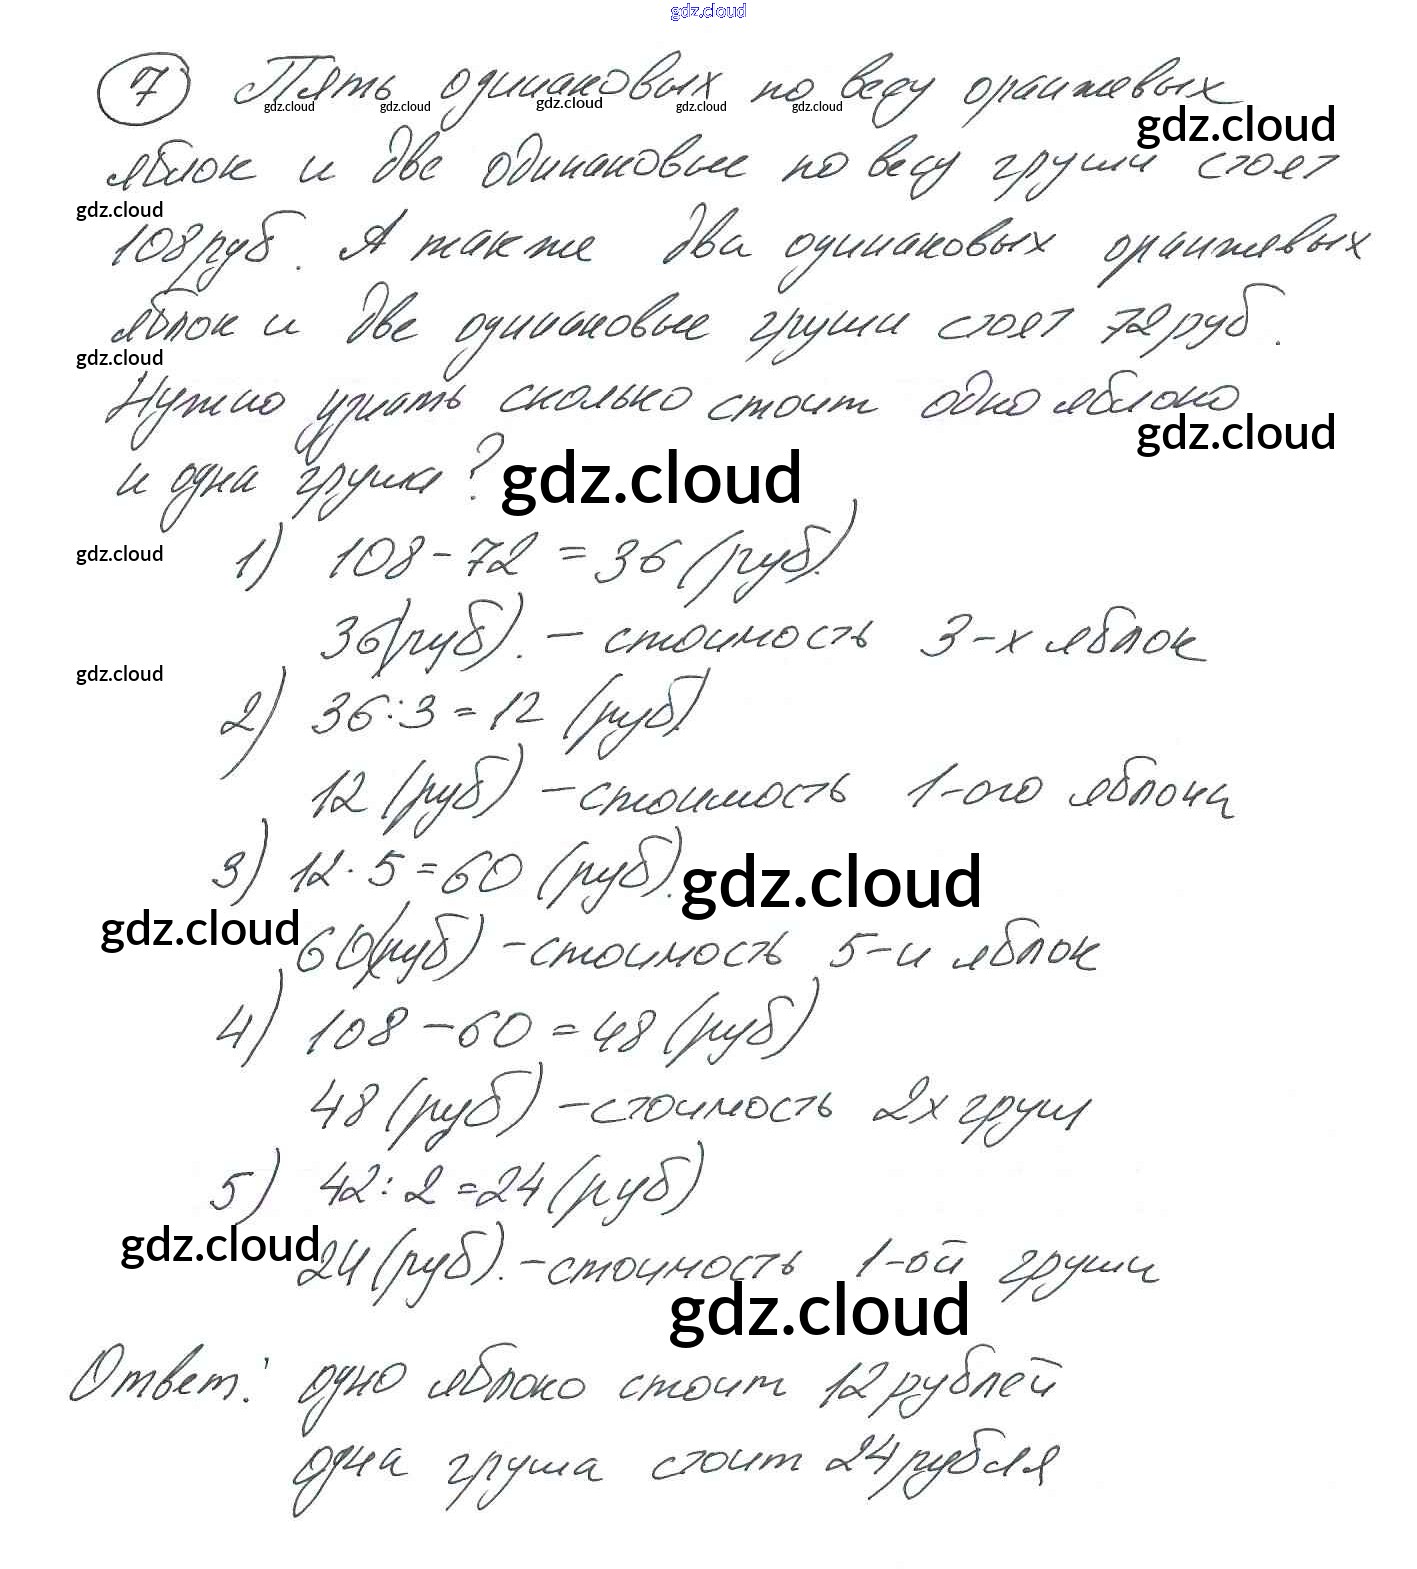 gdz.cloud
7 Пять одинаковых по весу оранжевых
gdz.cloud gdz.cloud gdz.cloud gdz.cloud gdz.cloud
gdz.cloud
яблок и две одинаковые по весу груши стоят
gdz.cloud
108 руб. А также два одинаковых оранжевых
яблок и две одинаковые груши стоят 72 руб.
gdz.cloud
Нужно узнать сколько стоит одно яблоко
gdz.cloud
и одна груша? gdz.cloud
gdz.cloud 1) 108 - 72 = 36 (руб.)
36 (руб). - стоимость 3-х яблок
gdz.cloud
2) 36 : 3 = 12 (руб)
12 (руб) - стоимость 1-ого яблока
3) 12 · 5 = 60 (руб). gdz.cloud
gdz.cloud 60 (руб) - стоимость 5-и яблок
4) 108 - 60 = 48 (руб)
48 (руб) - стоимость 2х груш
5) 42 : 2 = 24 (руб)
gdz.cloud 24 (руб). - стоимость 1-ой груши
gdz.cloud
Ответ: одно яблоко стоит 12 рублей
одна груша стоит 24 рубля